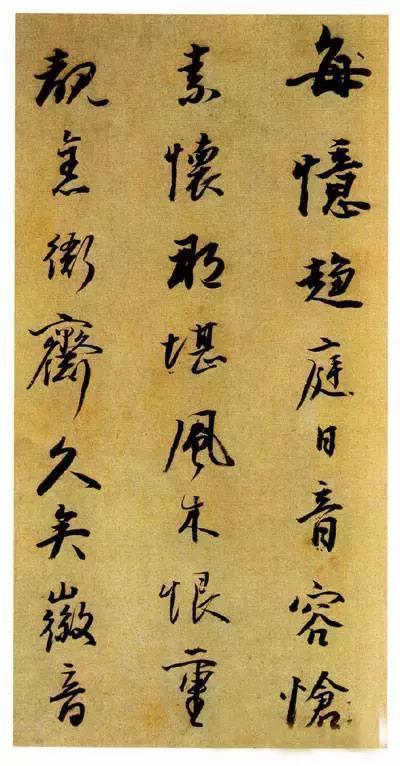 每憶趨庭日音容愴
素懷那堪風木恨重
覩舊衙齋久矣徽音